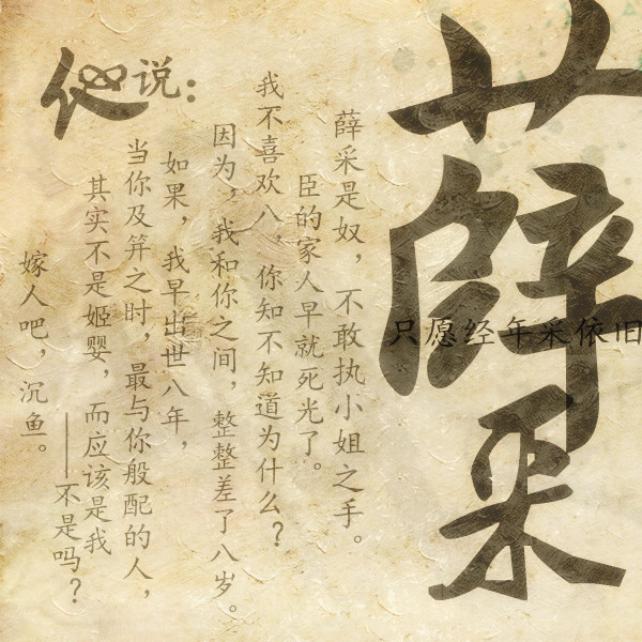 薛采
只愿经年采依旧
他说：
薛采是奴，不敢执小姐之手。
臣的家人早就死光了。
我不喜欢八、你知不知道为什么？
因为，我和你之间，整整差了八岁。
如果，我早出世八年，
当你及笄之时，最与你般配的人，
其实不是姬婴，而应该是我
——不是吗？
嫁人吧，沉鱼。